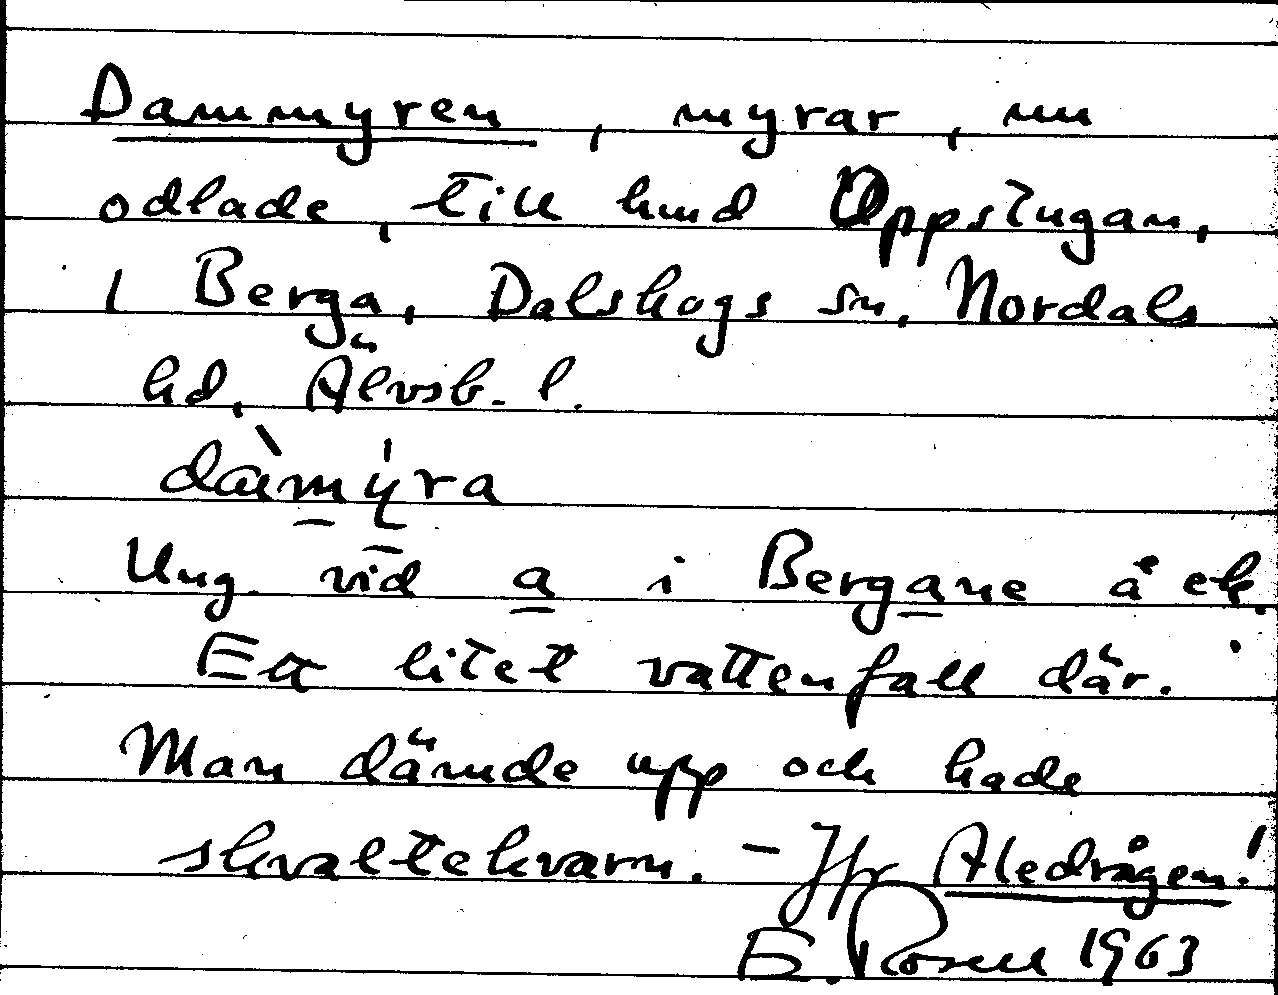 Dammyren, myrar, nu
odlade, till hmd Oppstugan,
i Berga, Dalskogs sn, Nordals
hd, Älvsb. l.
dàmmýra
Ung. vid a i Bergane å ek.
Ett litet vattenfall där.
Man dämde upp och hade
skvaltekvarn. - Jfr Aledrågen!
E. Rosell 1963